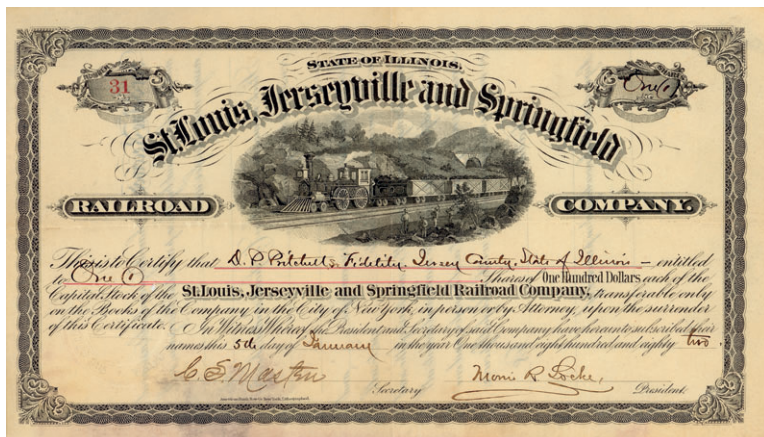 STATE OF ILLINOIS.
31
One (1)
St. Louis, Jerseyville and Springfield
RAILROAD COMPANY.
This is to Certify that D. P. Pritchett, Fidelity Jersey County, State of Illinois — entitled
to One (1) Shares of One Hundred Dollars each of the
Capital Stock of the St. Louis, Jerseyville and Springfield Railroad Company, transferable only
on the Books of the Company in the City of New York, in person or by Attorney, upon the surrender
of this Certificate. In Witness Whereof the President and Secretary of said Company have hereunto subscribed their
names this 5th day of January in the year One thousand eight hundred and eighty two.
C. S. Masten Secretary Morris R Locke, President.